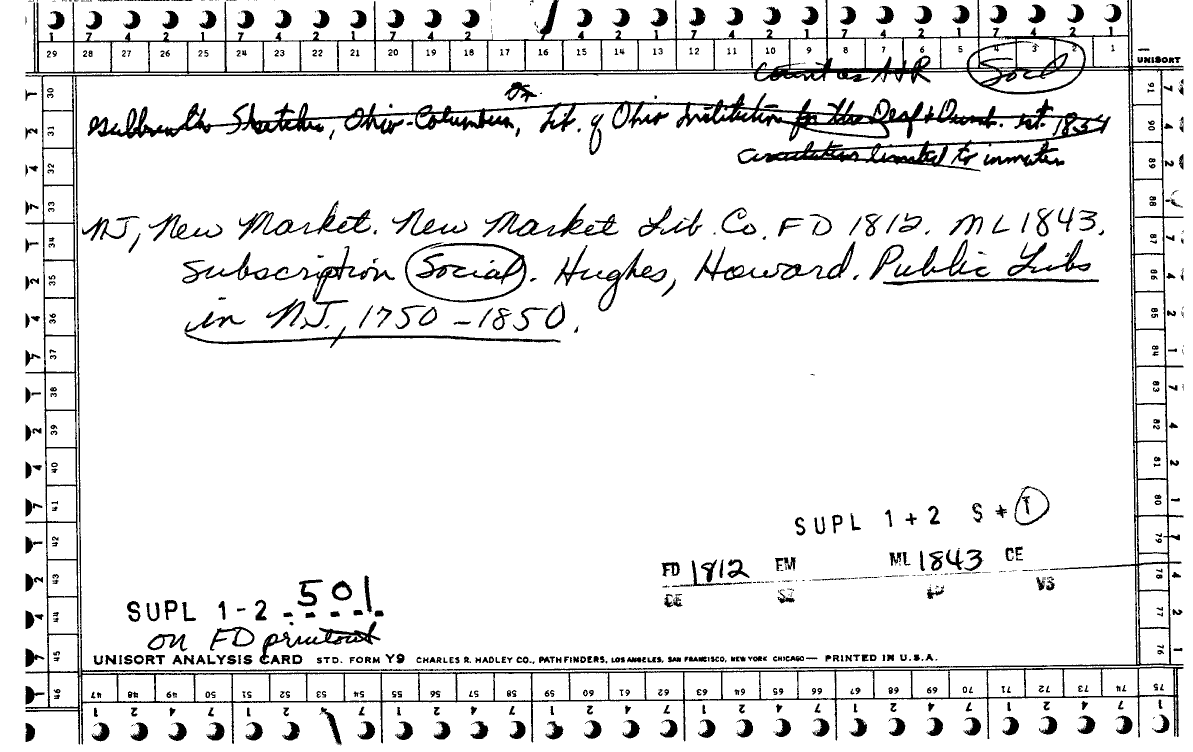 1 7 4 2 1 7 4 2 1 7 4 2 7 4 2 1 7 4 2 1 7 4 2 1
29 28 27 26 25 24 23 22 21 20 19 18 17 16 15 14 13 12 11 10 9 8 7 6 5 4 3 2 1
UNISORT
Count as AIR Socl
Sketches, Ohio-Columbus, Lib. of Ohio Institution for the Deaf & Dumb. est. 1854
circulation limited to inmates
NJ, New Market. New Market Lib Co. FD 1812. ML 1843.
Subscription Social. Hughes, Howard. Public Libs
in NJ., 1750-1850.
SUPL 1+2 S + T
FD 1812 EM ML 1843 CE
DE SZ VS
SUPL 1-2 501
on FD printout
UNISORT ANALYSIS CARD STD. FORM Y9 CHARLES R. HADLEY CO., PATHFINDERS, LOS ANGELES, SAN FRANCISCO, NEW YORK CHICAGO— PRINTED IN U.S.A.
30 31 32 33 34 35 36 37 38 39 40 41 42 43 44 45 46
47 48 49 50 51 52 53 54 55 56 57 58 59 60 61 62 63 64 65 66 67 68 69 70 71 72 73 74 75
76 77 78 79 80 81 82 83 84 85 86 87 88 89 90 91